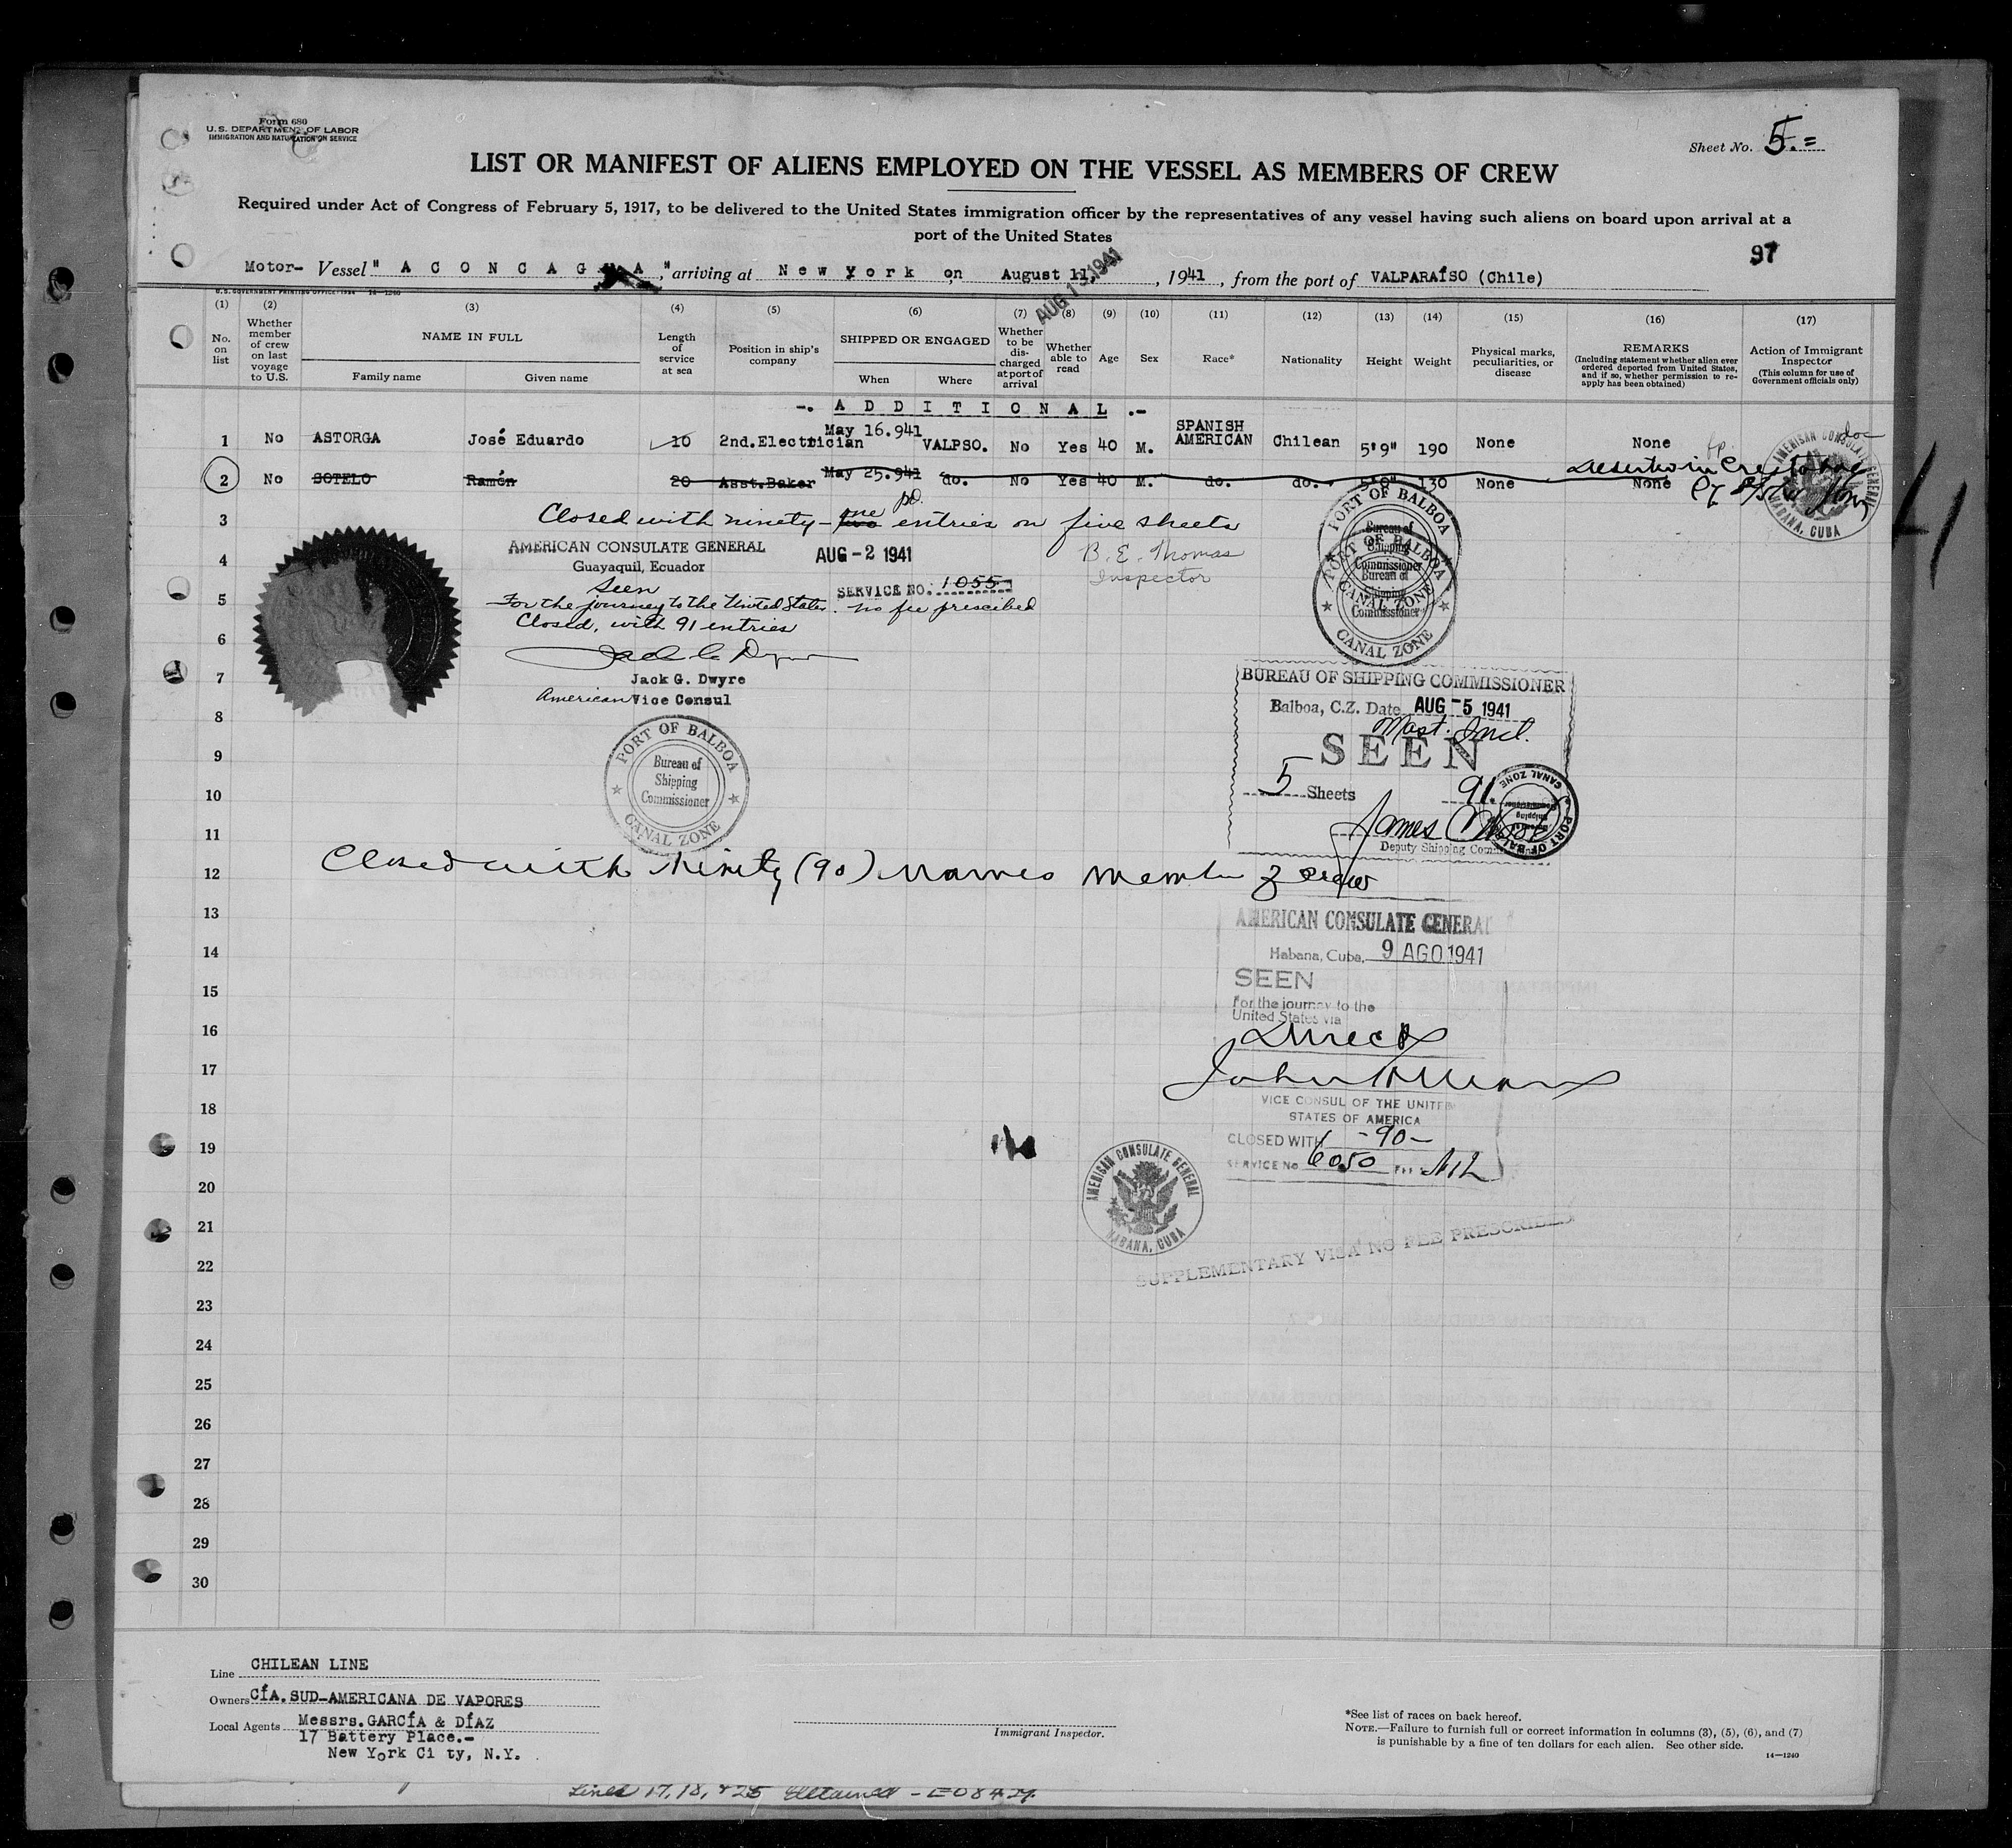 Form 680
U.S. DEPARTMENT OF LABOR
IMMIGRATION AND NATURALIZATION SERVICE
Sheet No. 5.=
LIST OR MANIFEST OF ALIENS EMPLOYED ON THE VESSEL AS MEMBERS OF CREW
Required under Act of Congress of February 5, 1917, to be delivered to the United States immigration officer by the representatives of any vessel having such aliens on board upon arrival at a
port of the United States
97
Motor- Vessel " A C O N C A G U A ," arriving at New York on August 11, 1941, from the port of VALPARAÍSO (Chile)
AUG 13 1941
U.S. GOVERNMENT PRINTING OFFICE 14-1240
(1) (2) (3) (4) (5) (6) (7) (8) (9) (10) (11) (12) (13) (14) (15) (16) (17)
No. on list
Whether member of crew on last voyage to U.S.
NAME IN FULL
Family name
Given name
Length of service at sea
Position in ship's company
SHIPPED OR ENGAGED
When
Where
Whether to be discharged at port of arrival
Whether able to read
Age
Sex
Race*
Nationality
Height
Weight
Physical marks, peculiarities, or disease
REMARKS
(Including statement whether alien ever ordered deported from United States, and if so, whether permission to reapply has been obtained)
Action of Immigrant Inspector
(This column for use of Government officials only)
-. A D D I T I O N A L .-
1 No ASTORGA José Eduardo 10 2nd.Electrician May 16.941 VALPSO. No Yes 40 M. SPANISH AMERICAN Chilean 5'9" 190 None None
2 No SOTELO Ramón 20 Asst.Baker May 25.941 do. No Yes 40 M. do. do. 5'0" 130 None None
Deserted in Cristobal
AMERICAN CONSULATE GENERAL
HABANA, CUBA
3
Closed with ninety-one entries on five sheets
4
AMERICAN CONSULATE GENERAL
Guayaquil, Ecuador
AUG -2 1941
B. E. Thomas
Inspector
Seen
SERVICE NO. 1055
5
For the journey to the United States. no fee prescribed
Closed, with 91 entries
6
Jack G. Dwyre
7
Jack G. Dwyre
American Vice Consul
PORT OF BALBOA
Bureau of Shipping Commissioner
CANAL ZONE
PORT OF BALBOA
Bureau of Shipping Commissioner
CANAL ZONE
PORT OF BALBOA
Bureau of Shipping Commissioner
CANAL ZONE
BUREAU OF SHIPPING COMMISSIONER
Balboa, C.Z. Date AUG -5 1941
Mast. Incl.
SEEN
5 Sheets 91.
James
Deputy Shipping Comm
PORT OF BALBOA
CANAL ZONE
8
9
10
11
12
Closed with Ninety (90) names member of crew
13
AMERICAN CONSULATE GENERAL
14
Habana, Cuba, 9 AGO 1941
15
SEEN
For the journey to the
United States via
16
Direct
17
John
18
VICE CONSUL OF THE UNITED
STATES OF AMERICA
19
CLOSED WITH -90-
SERVICE No 6050 Nil
20
AMERICAN CONSULATE GENERAL
HABANA, CUBA
21
22
SUPPLEMENTARY VISA NO FEE PRESCRIBED
23
24
25
26
27
28
29
30
Line CHILEAN LINE
Owners CÍA. SUD-AMERICANA DE VAPORES
Local Agents Messrs. GARCÍA & DÍAZ
17 Battery Place.-
New York Ci ty, N.Y.
Immigrant Inspector.
*See list of races on back hereof.
NOTE.—Failure to furnish full or correct information in columns (3), (5), (6), and (7)
is punishable by a fine of ten dollars for each alien. See other side.
14—1240
Lines 17, 18, + 25 detained -